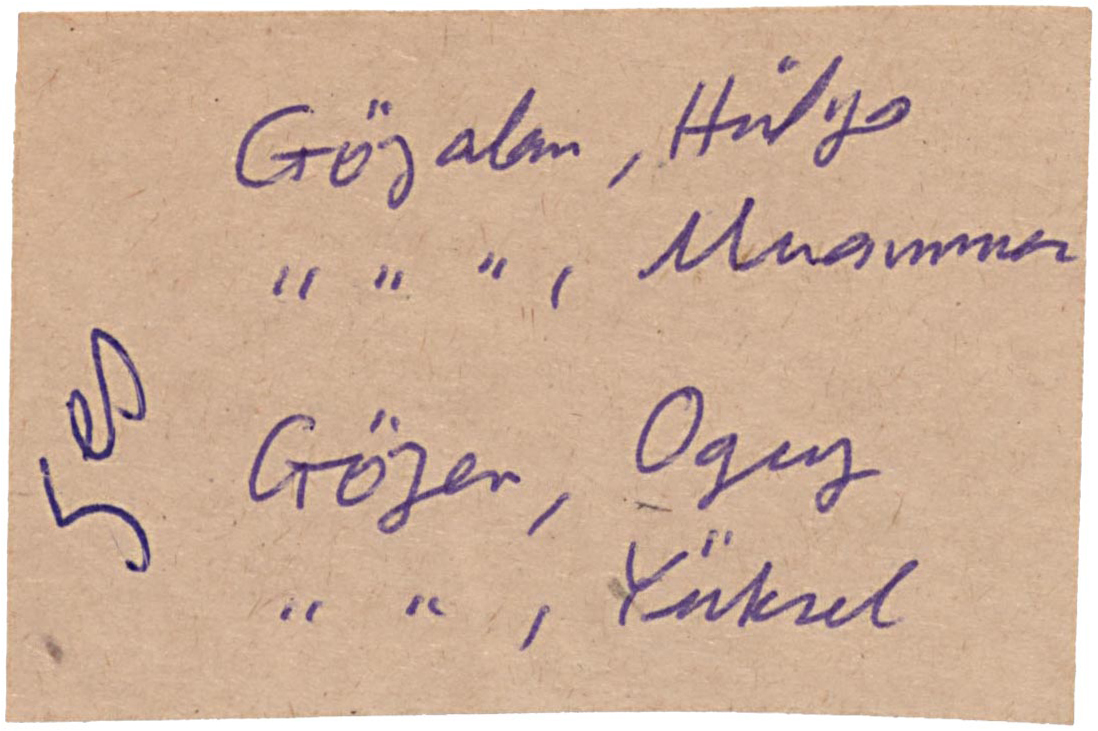 Gözalan, Hülya
" " ", Muammer
Gözen, Oguz
" ", Yüksel